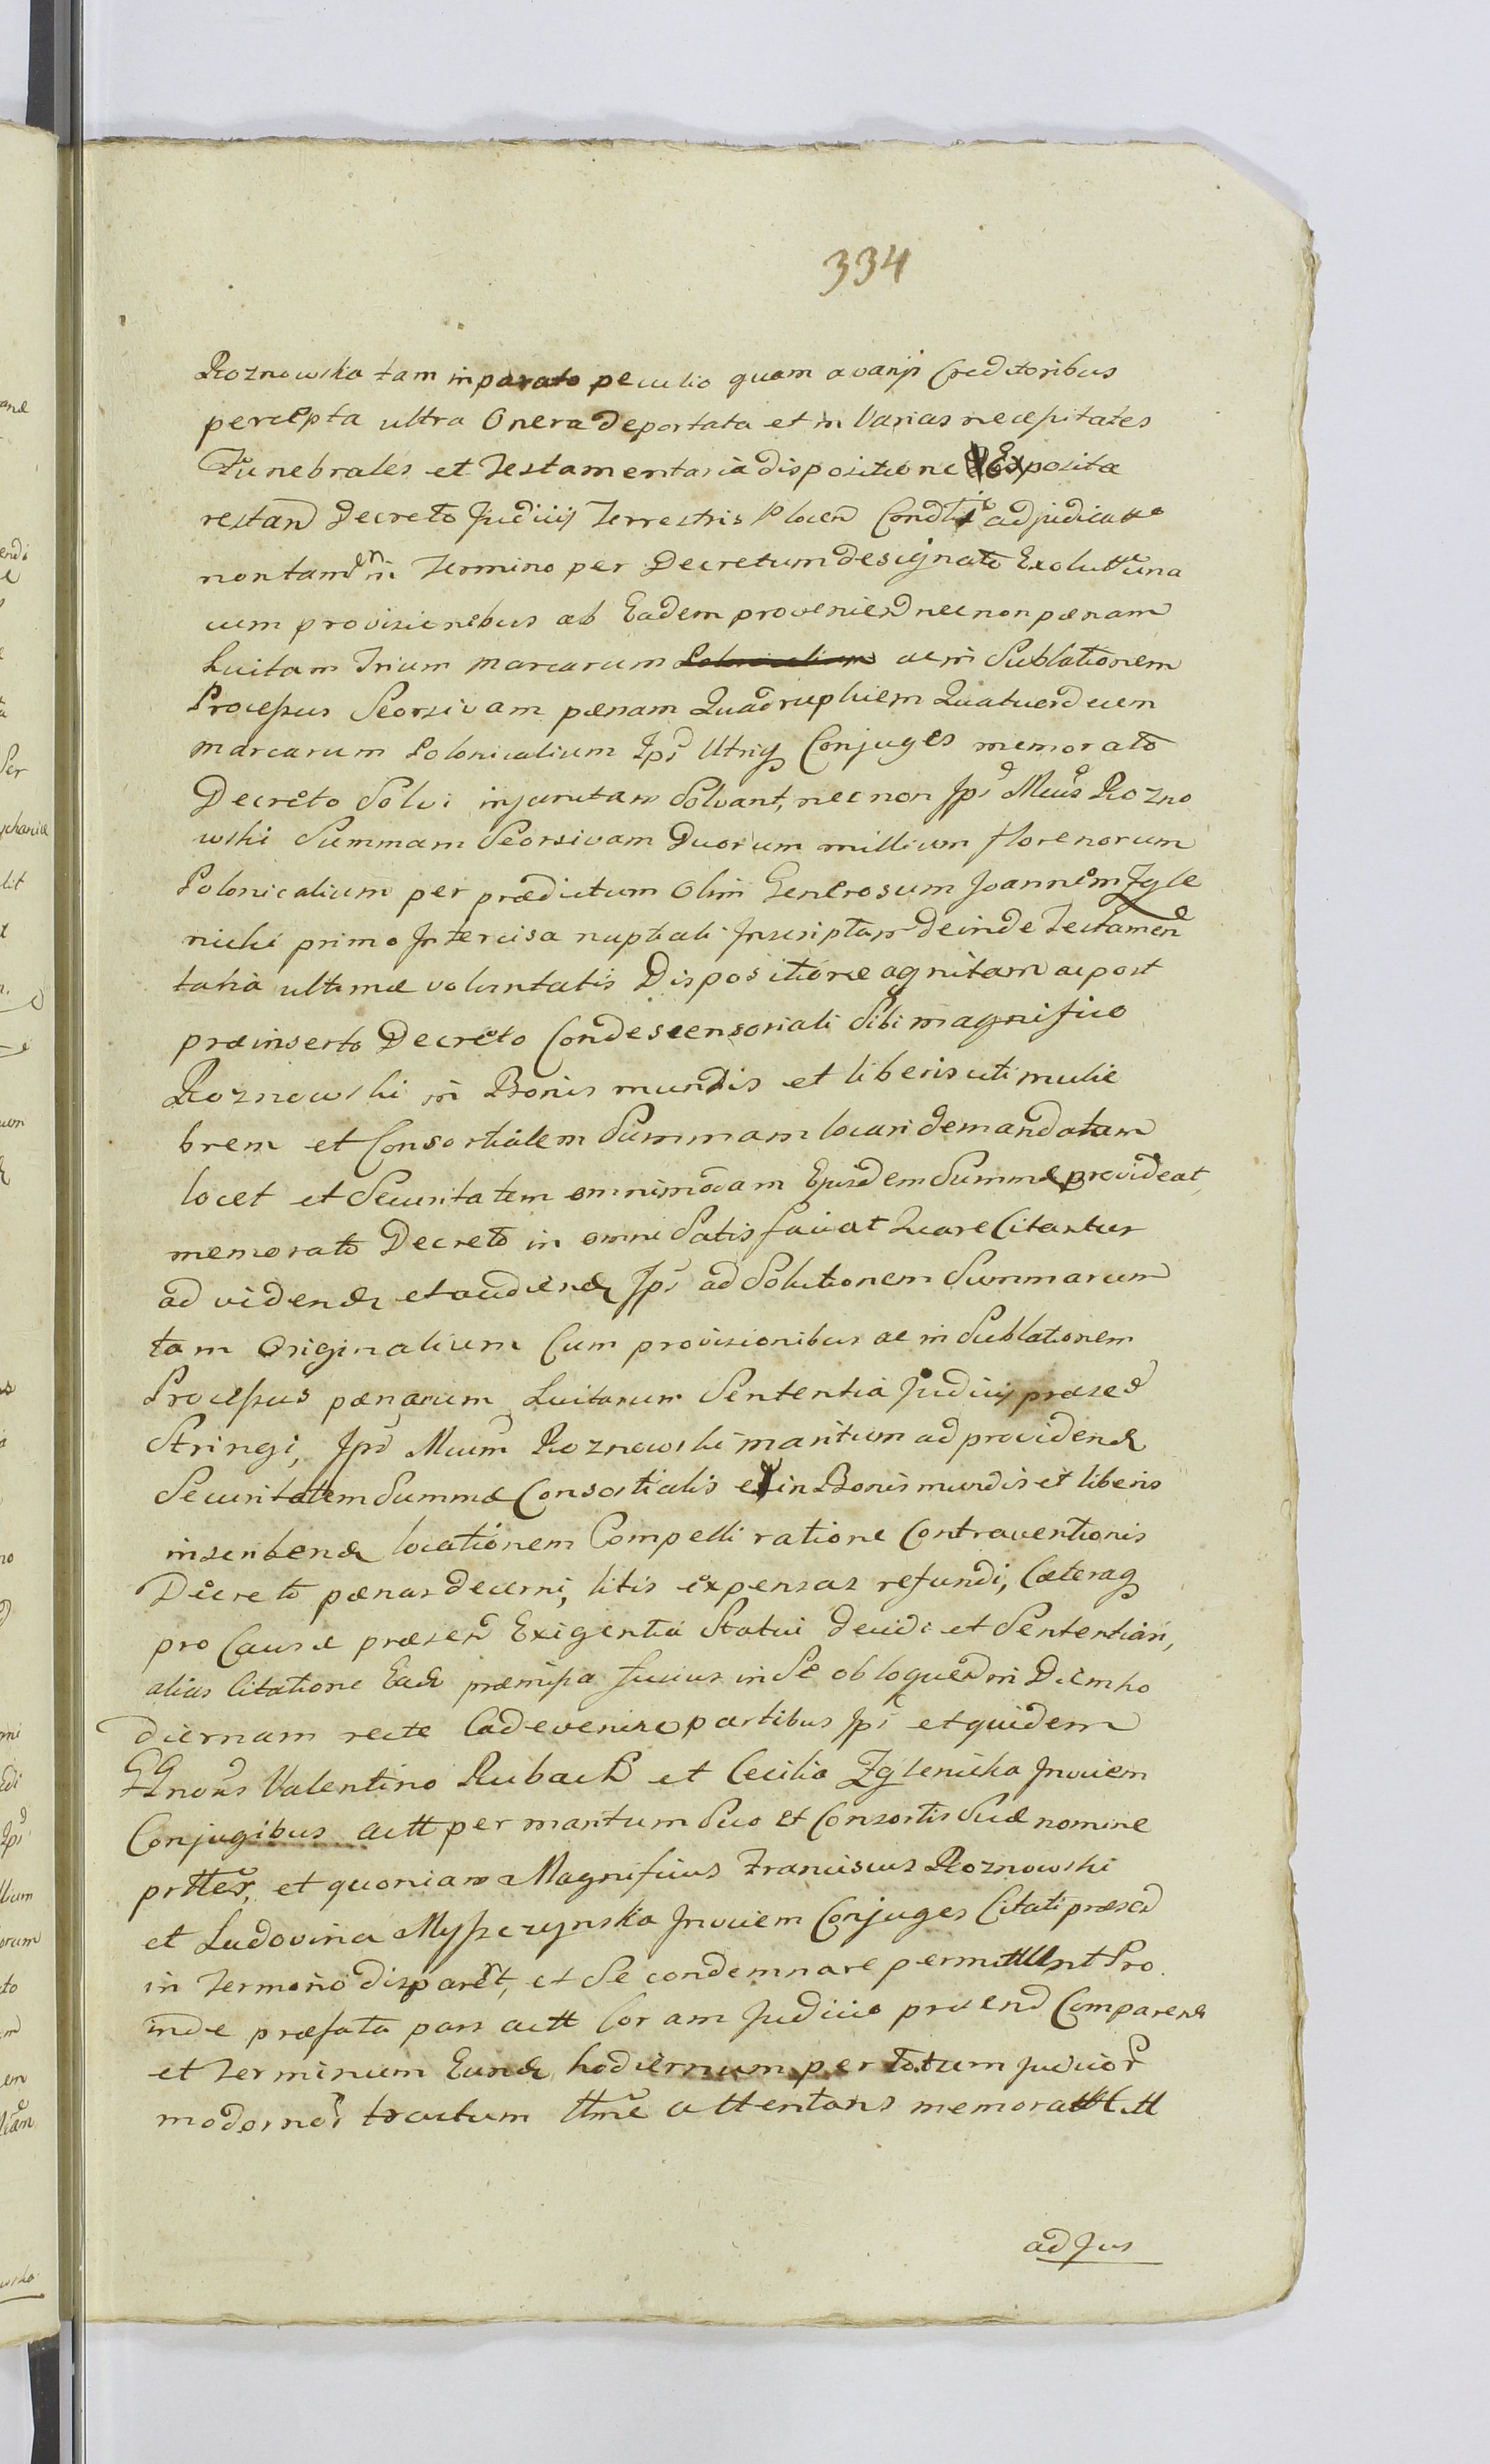 334
Roznowska tam in parato peculio quam a varijs Creditoribus
percepta ultra Onera deportata et in Varias necessitates
Funebrales et Testamentaria dispositione Exposita
restand Decreto Judicij Terrestris Plocen adjudicatto
non tamen in Termino per Decretum designato Exolutt una
cum provisionibus ab Eadem proveniend nec non pænam
Luitam Trium marcarum ac in Sublationem
Processus Seorsivam pænam Quadruplicem Quatuordecem
marcarum Polonicalium Ipsi Utrig Conjuges memorato
Decreto Solvi injunctam Solvant, nec non Ipse Mcus Rozno
wski Summam Seorsivam Duorum millium florenorum
Polonicalium per prædictum Olim Generosum Joannem Zgle
nicki primo Intercisa nuptiali Inscriptam deinde Testamen
taria ultimæ voluntatis Dispositione agnitam ac post
præinserto Decreto Condescensoriali Sibi magnifico
Roznowski in Bonis mundis et liberis uti mulie
brem et Consortialem Summam locari demandatam
locet et Securitatem omnimodam Ejusdem Summæ provideat,
memorato Decreto in omni Satisfaciat Quare Citantur
ad vidend et audiend Ipsi ad Solutionem Summarum
tam Originalium Cum provisionibus ac in Sublationem
Processus pænarum Luitarum Sententia Judicij præsed
Stringi, Ipsd Mcum Roznowski maritum ad providend
Securitatem Summæ Consortialis et in Bonis mundis et liberis
inscribend locationem Compelli ratione Contraventionis
Decreto pænas decerni, litis expensas refundi, Cæterag
pro Causæ præsen Exigentia Statui decidi et Sententiari,
alias Citatione Ead præmissa fusius in Se obloquend in Diem ho
diernam recte Cadevenire partibus Ipsis et quidem
GGnoris Valentino Rubach et Cecilia Zglenicka Invicem
Conjugibus actt per maritum Suo et Consortis Suæ nomine
prtter, et quoniam Magnificus Franciscus Roznowski
et Ludovina Myszczynska Invicem Conjuges Citati præsed
in Termino disparet, et Se condemnare permittunt Pro
inde præfata pars actt Coram Judicio præsend Comparend
et Terminum Eund hodiernum per totum Judicior
modernor tractum ttme attentans memoratt Citt
ad Jus